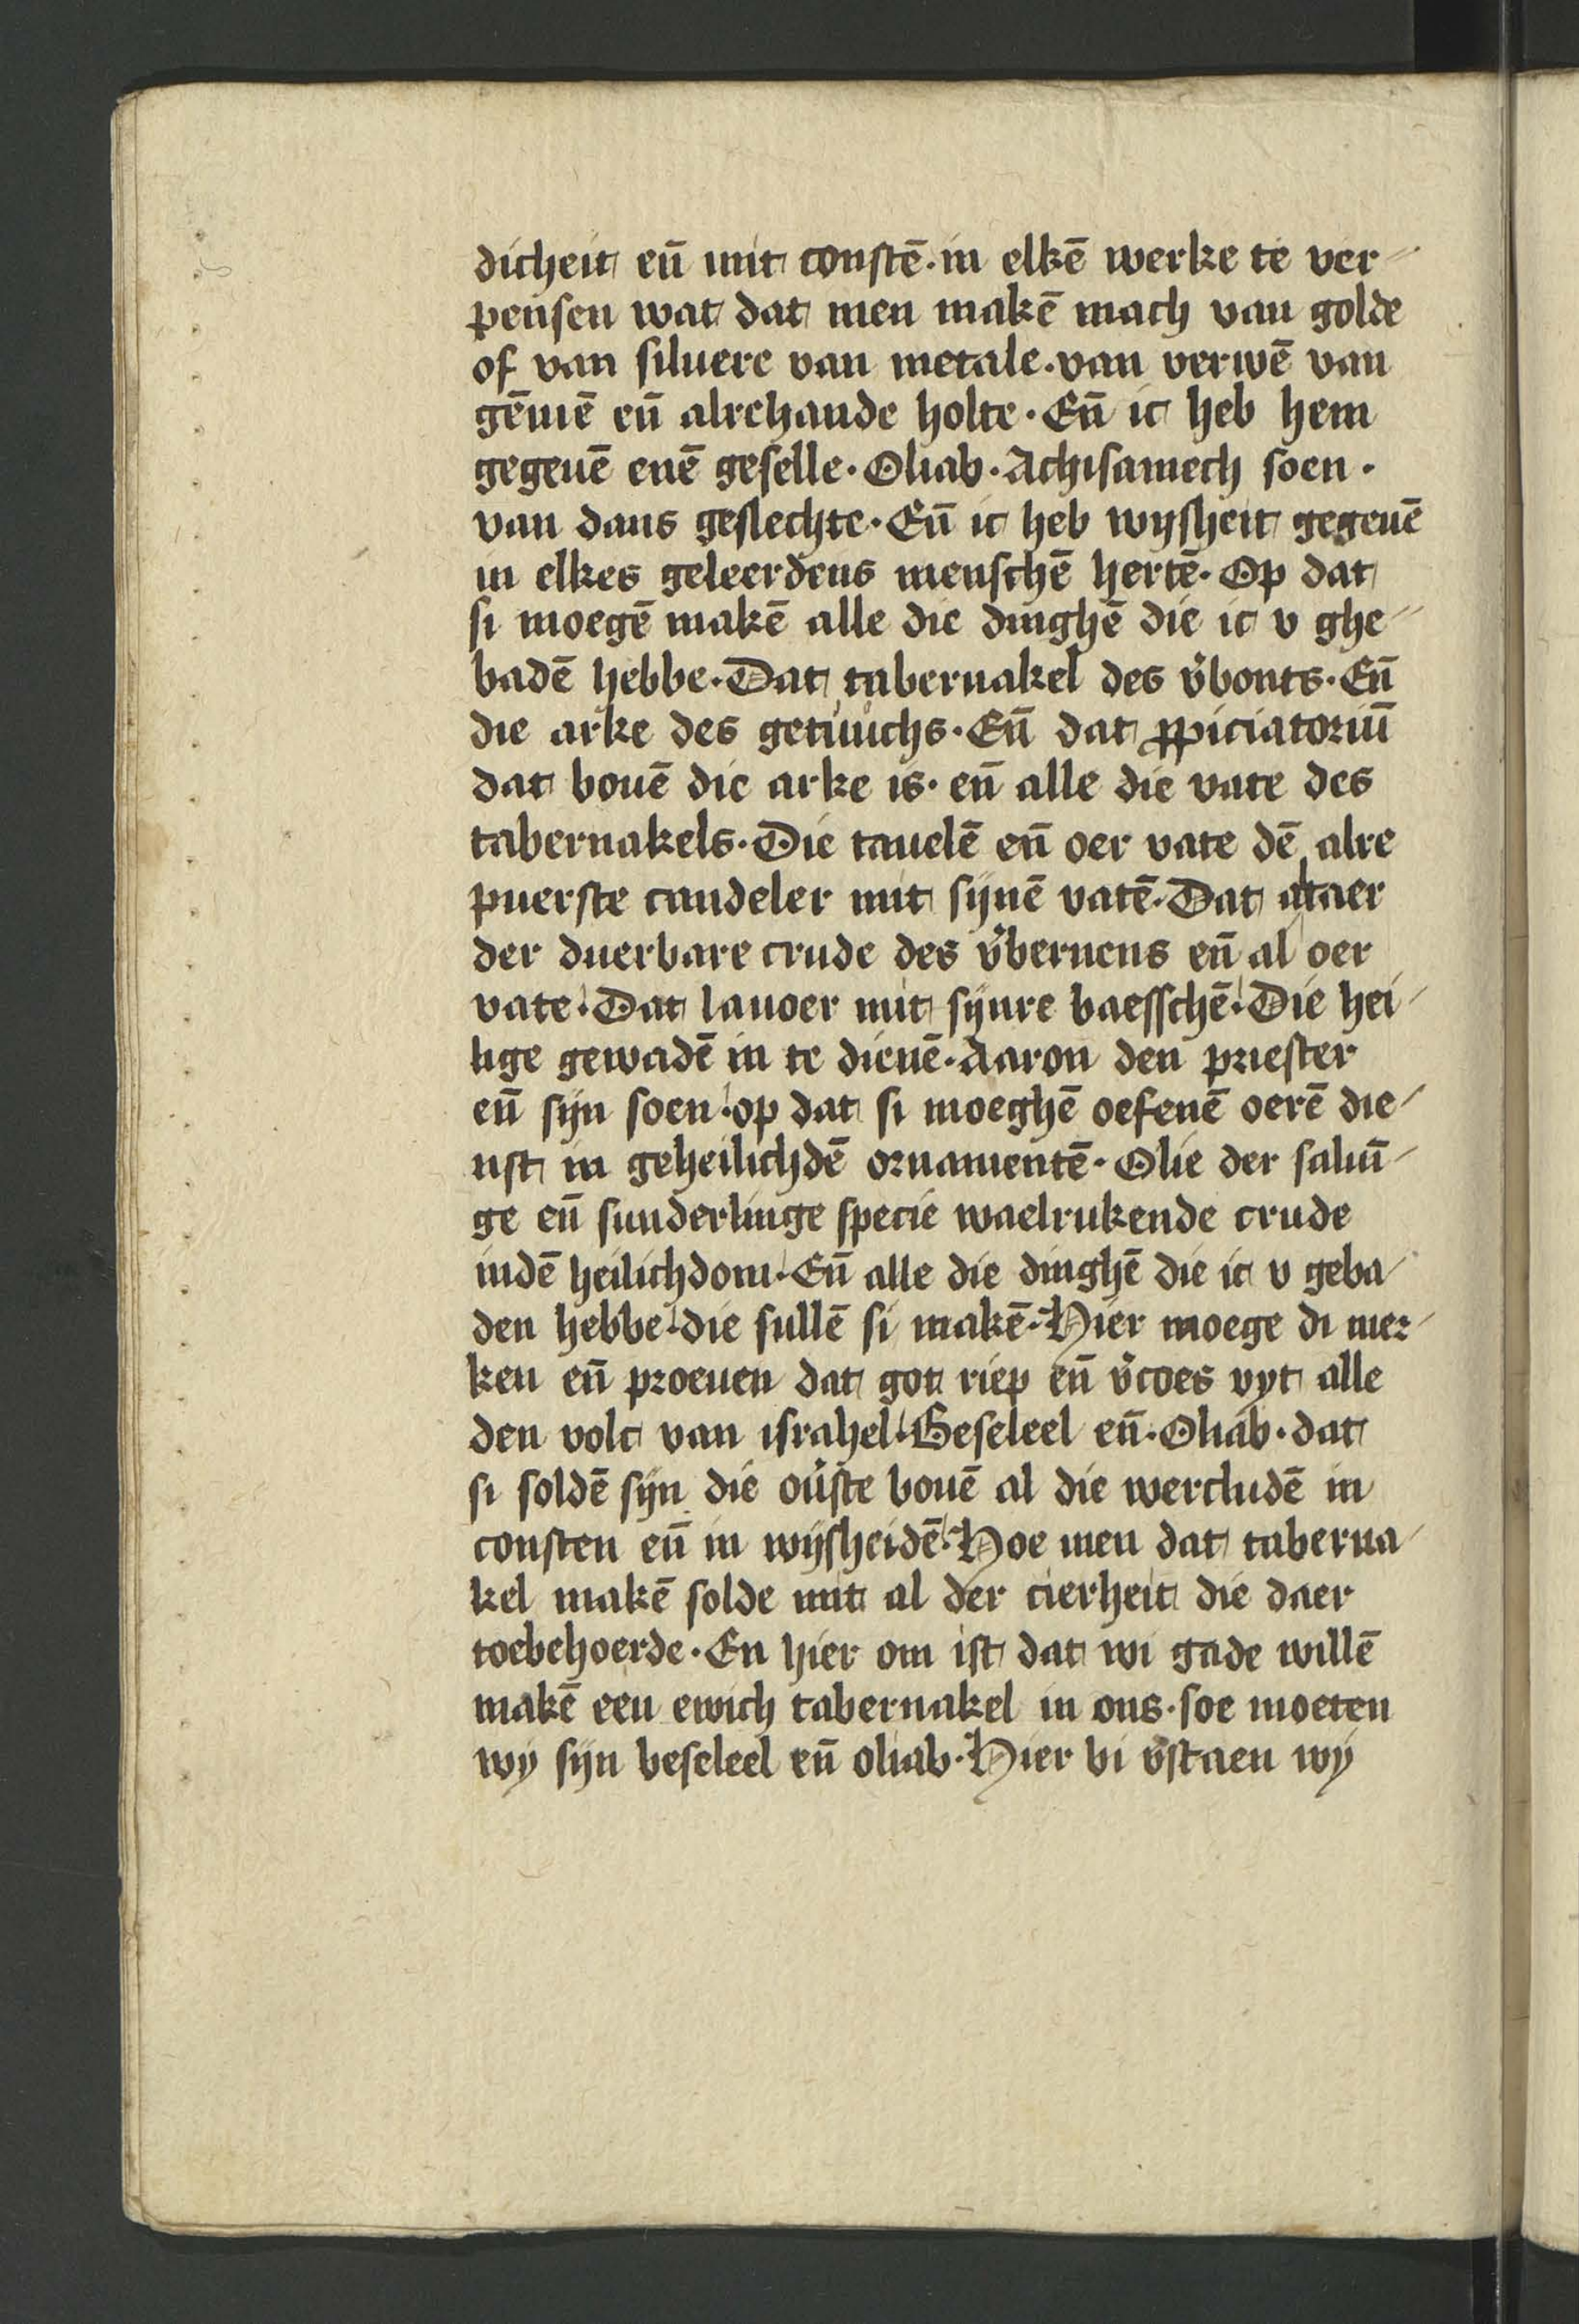 dicheit en̄ mit constē. in elkē werke te ver-
pensen wat dat men makē mach van golde
of van siluere van metale. van verwē van
gēmē en̄ alrehande holte. En̄ ic heb hem
gegeuē enē geselle. Oliab. Achisamech soen.
van dans geslechte. En̄ ic heb wijsheit gegeuē
in elkes geleerdens menschē hertē. Op dat
si moegē makē alle die dinghē die ic v ghe-
badē hebbe. Dat tabernakel des v̾bonts. En̄
die arke des getuuchs. En̄ dat ꝓpiciatoriū
dat bouē die arke is. en̄ alle die vate des
tabernakels. Die tauelē en̄ oer vate dē alre
puerste candeler mit sijnē vatē. Dat altaer
der duerbare crude des v̾bernens en̄ al oer
vate. Dat lauoer mit sijnre baesschē. Die hei-
lige gewadē in te dienē. Aaron den priester
en̄ sijn soen. op dat si moeghē oefenē oerē die-
nst in geheilichdē ornamentē. Olie der saluū-
ge en̄ sunderlinge specie waelrukende crude
indē heilichdom. En̄ alle die dinghē die ic v geba-
den hebbe. die sullē si makē. Hier moege di mer-
ken en̄ proeuen dat got riep en̄ v̾coes vyt alle
den volc van israhel. Beseleel en̄. Oliab. dat
si soldē sijn die ou̾ste bouē al die wercludē in
consten en̄ in wijsheidē. Hoe men dat taberna-
kel makē solde mit al der cierheit die daer
toebehoerde. En hier om ist dat wi gade willē
makē een ewich tabernakel in ons. soe moeten
wy sijn beseleel en̄ oliab. Hier bi v̾staen wij